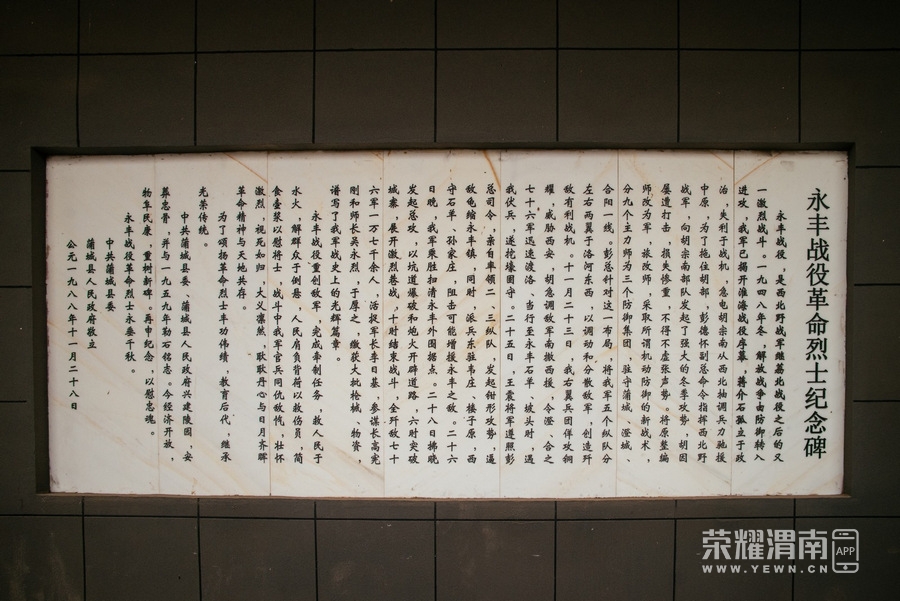 永丰战役革命烈士纪念碑
永丰战役，是西北野战军继荔北战役之后的又
一激烈战斗。一九四八年冬，解放战争由防御转入
进攻，我军已揭开淮海战役序幕，蒋介石孤立于政
治，失利于战机，急电胡宗南从西北抽调兵力驰援
中原，为了拖住胡部，彭德怀副总命令指挥西北野
战军，向胡宗南部队发起了强大的冬季攻势，胡因
屡遭打击，损失惨重，不得不虚张声势。将原整编
师改为军，旅改师，采取所谓机动防御的新战术，
分九个主力师为三个防御集团，驻守蒲城、澄城、
合阳一线。彭总针对这一布局，将我军五个纵队分
左右两翼于洛河东西，以调动和分散敌军，创造歼
敌有利战机。十一月二十三日，我右翼兵团佯攻铜
耀，威胁西安，胡急调敌军南撤西援，令澄、合之
七十六军迅速渡洛、当行至永丰石羊、坡头时，遇
我伏兵，遂挖壕固守。二十五日，王震将军遵照彭
总司令，亲自率领二、三纵队，发起钳形攻势，逼
敌龟缩永丰镇，同时，派兵东驻韦庄、楼子原，西
守石羊、孙家庄，阻击可能增援永丰之敌。二十六
日晚，我军乘胜扫清永丰外围据点。二十八日拂晓
发起总攻，以坑道爆破和炮火开辟道路，六时突破
城寨，展开激烈巷战，十时结束战斗，全歼敌七十
六军一万七千余人，活捉军长李日基，参谋长高宪
刚和师长吴永烈，于厚之，缴获大批枪械、物资，
谱写了我军战史上的光辉篇章。
永丰战役重创敌军，完成牵制任务，救人民于
水火，解群众于倒悬，人民肩负背荷以救伤员，箪
食壶浆以慰将士，战斗中我军官兵同仇敌忾，壮怀
激烈，视死如归，大义凛然，耿耿丹心与日月齐辉
革命精神与天地共存。
为了颂扬革命烈士丰功伟绩，教育后代，继承
光荣传统。
中共蒲城县委、蒲城县人民政府兴建陵园，安
葬忠骨，并与一九五九年勒石铭志。今经济开放，
物阜民康，重树新碑，再申纪念，以慰忠魂。
永丰战役革命烈士永垂千秋。
中共蒲城县委
蒲城县人民政府敬立
公元一九八八年十一月二十八日
荣耀渭南
APP
WWW.YEWN.CN